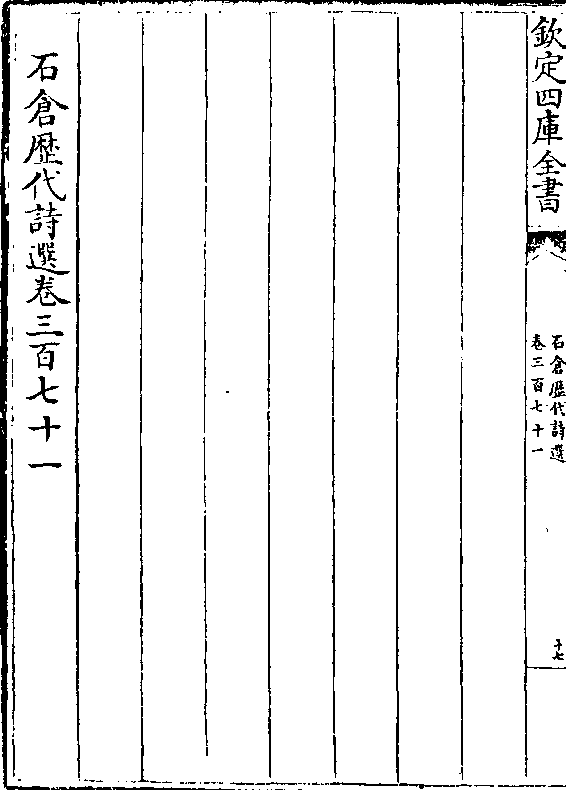 欽定四庫全書
石倉歴代詩選
卷三百七十一
十七
石倉歴代詩選卷三百七十一